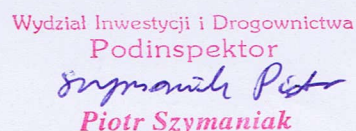 Wydział Inwestycji i Drogownictwa
Podinspektor
Szymaniak Piotr
Piotr Szymaniak